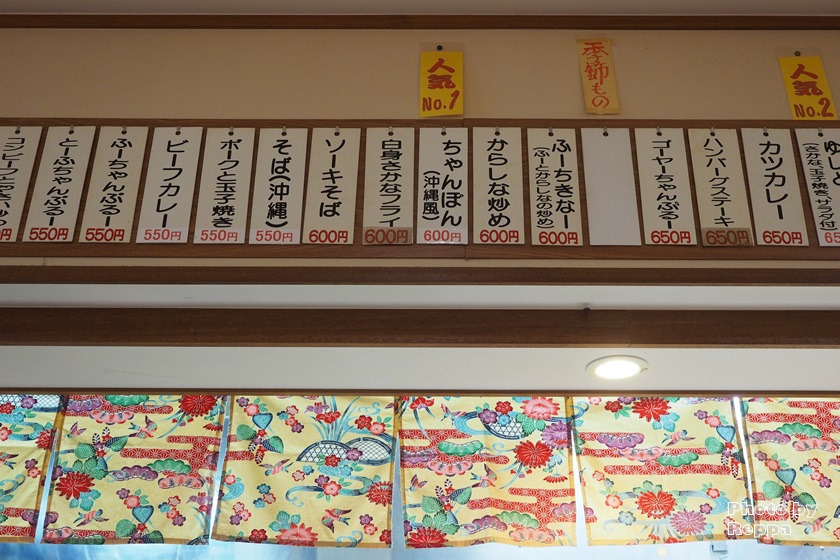 人気
No.1
季節もの
人気
No.2
コンビーフとやさい炒め
とーふちゃんぷるー
550円
ふーちゃんぷるー
550円
ビーフカレー
550円
ポークと玉子焼き
550円
そば(沖縄)
550円
ソーキそば
600円
白身さかなフライ
600円
ちゃんぽん
(沖縄風)
600円
からしな炒め
600円
ふーちきなー
(ふーとからしな炒め)
600円
ゴーヤーちゃんぷるー
650円
ハンバーグステーキ
650円
カツカレー
650円
(さかな、玉子焼き、サラダ付
Photo by
Reppa